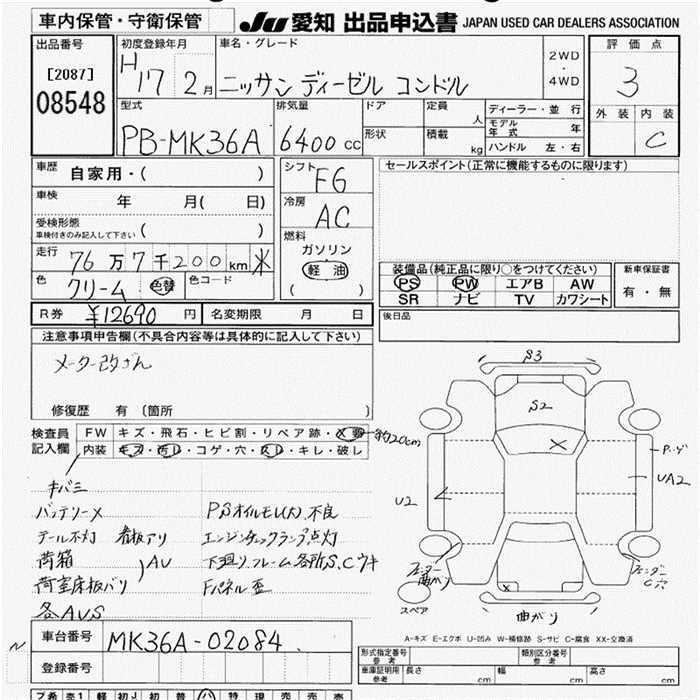 車内保管・守衛保管
JU 愛知 出品申込書 JAPAN USED CAR DEALERS ASSOCIATION
出品番号
[2087]
08548
初度登録年月
H 17 2月
車名・グレード
ニッサン ディーゼル コンドル
2WD
・
4WD
評価点
3
外装 内装
C
型式
PB-MK36A
排気量
6400 cc
ドア
形状
定員
人
積載
kg
ディーラー・並行
モデル年式 年
ハンドル 左・右
車歴
自家用・( )
車検
年 月( 日)
受検形態
車検付きのみ記入して下さい ( )
走行
76万7千200km
色
クリーム 色替
色コード
シフト
F6
冷房
AC
燃料
ガソリン
軽油
( )
セールスポイント(正常に機能するものに限ります)
装備品(純正品に限り○をつけてください)
PS PW エアB AW
SR ナビ TV カワシート
新車保証書
有・無
後日品
R券 ¥12690円
名変期限 月 日
注意事項申告欄(不具合内容等は具体的に記入して下さい)
メーター改ざん
修復歴 有 (箇所 )
検査員
記入欄
FW キズ・飛石・ヒビ割・リペア跡・
約20cm
内装 キズ・汚レ・コゲ・穴・スレ・キレ・破レ
キバミ
バッテリー×
テール不灯 看板アリ
荷箱
荷室床板バリ
AU
各AUS
PSオイルモレ(大)不良
エンジンチェックランプ点灯
下廻り.フレーム各所S.Cウキ
Fパネル歪
S3
S2
U2
UA2
フェンダー曲がり
フェンダーC穴
スペア
曲がり
A-キズ E-エクボ U-凹み W-補修跡 S-サビ C-腐食 XX-交換済
車台番号
MK36A-02084
登録番号
形式指定番号
参考
類別区分番号
参考
車庫証明用
参考
長さ cm
幅 cm
高さ cm